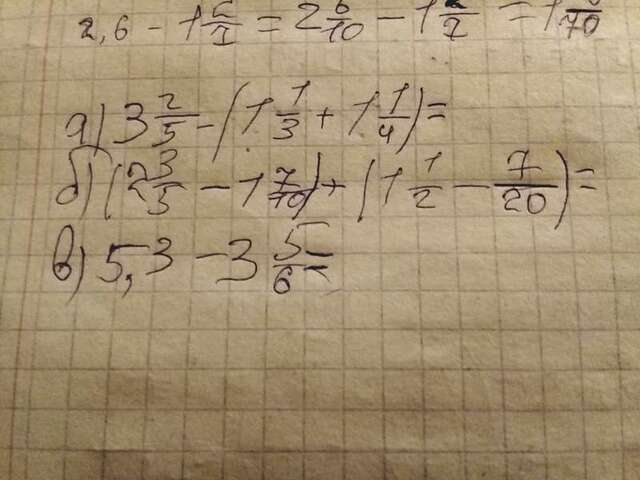 2,6 - 1 = 2 6/10 - 1 2/7 = 1 /70
а) 3 2/5 - (1 1/3 + 1 1/4) =
б) (2 3/5 - 1 7/10) + (1 1/2 - 7/20) =
в) 5,3 - 3 5/6 =